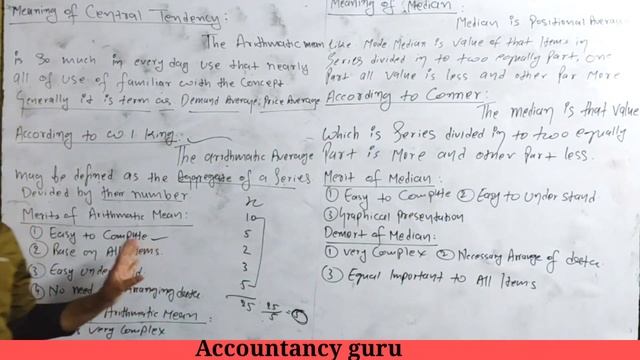 Meaning of Central Tendency:
The Arithmatic mean
is so much in every day use that nearly
all of use of familiar with the concept
Generally it is term as Demand Average, Price Average
According to W I King:
The arrithmatic Average
may be defined as the Aggregate of a Series
Devided by their number
Merits of Arithmatic Mean:
① Easy to Compute
② Base on All Items.
③ Easy und
④ No need Arranging data
Arithmatic Mean:
very Complex
x
10
5
2
3
5
25
25/5 = 5
Meaning of Median:
Median is Positional Average
Like Mode Median is value of that Items in
Series divided in to two equally Part, One
Part all value is less and other Par More
According to Conner:
The median is that value
Which is Series divided in to two equally
Part is More and other Part less.
Merit of Median:
① Easy to Compute ② Easy to Under stand
③ Graphical presentation
Demert of Median:
① very Complex ② Necessary Arrange of data.
③ Equal Important to All Items
Accountancy guru